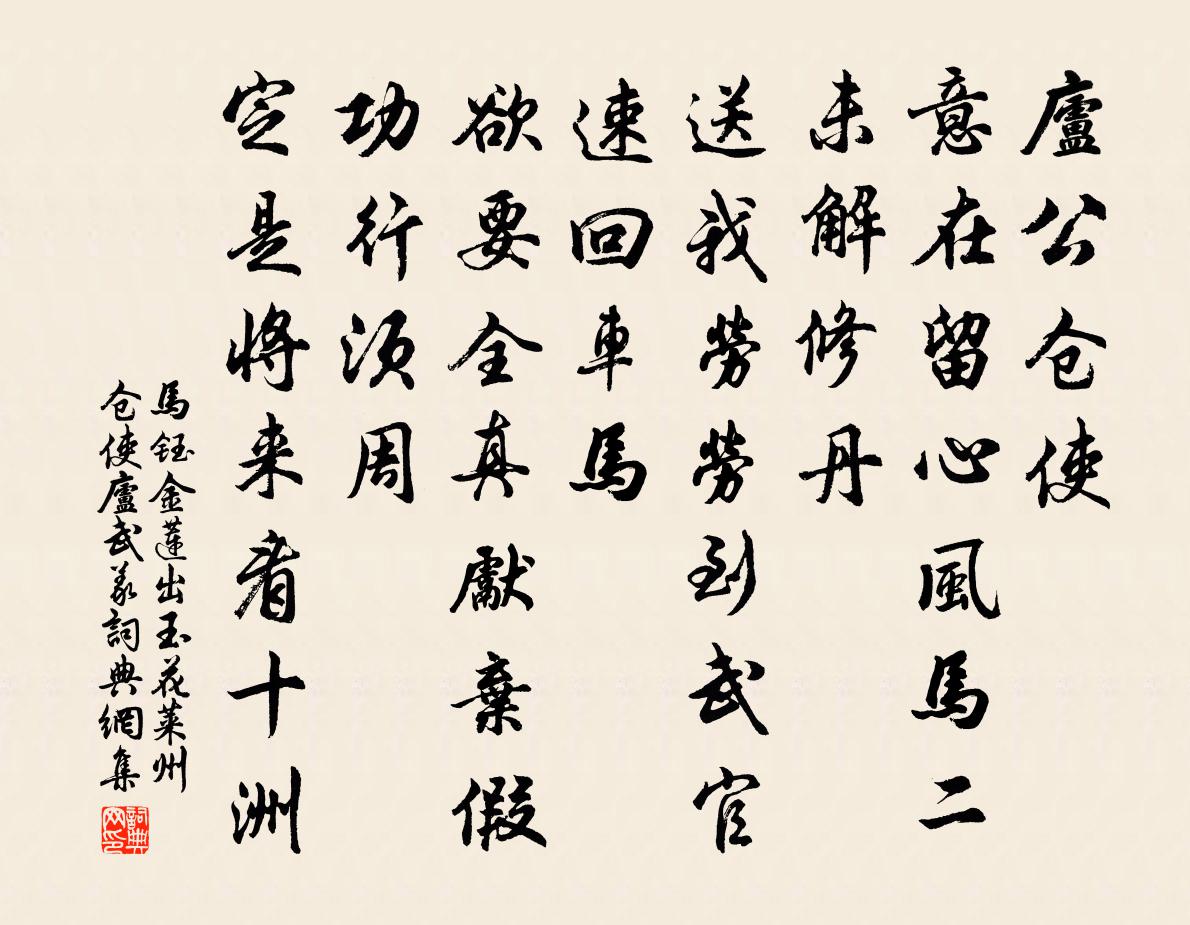 廬公仓使
意在留心風馬二
未解修丹
送我勞勞到武官
速回車馬
欲要全真獻棄假
功行須周
定是將来看十洲
馬鈺金蓮出玉花萊州
仓使廬武義詞典網集
詞典
网印